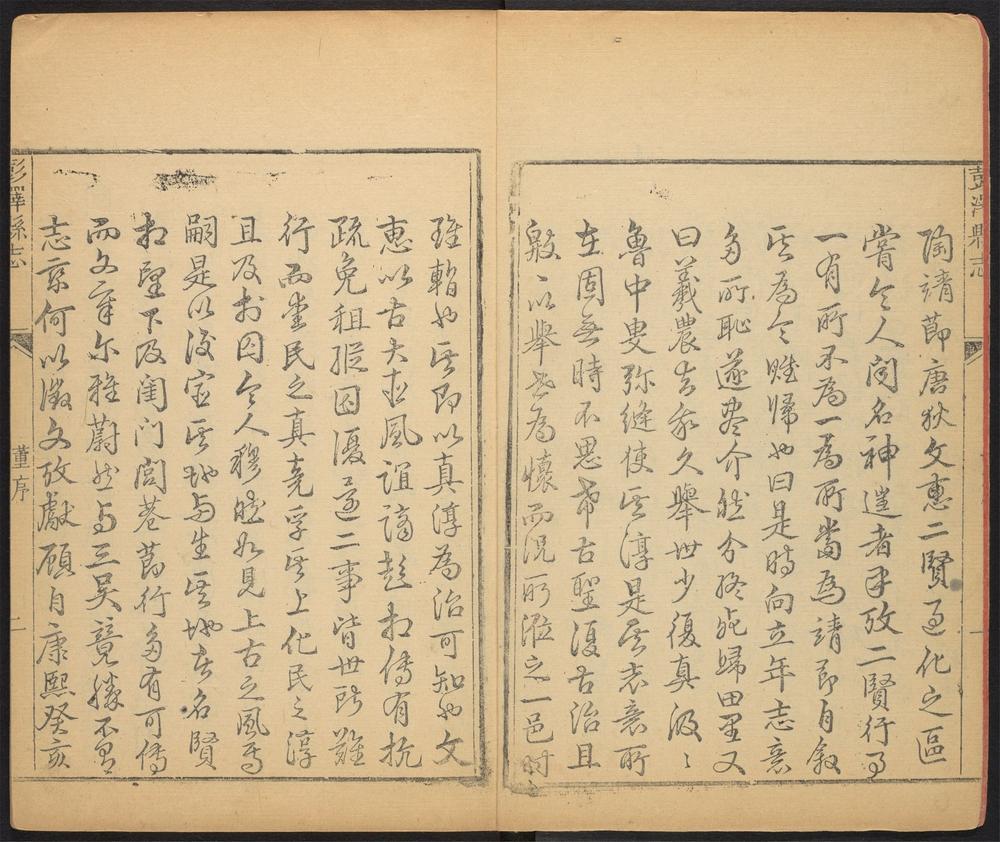 彭澤縣志
一
陶靖節唐狄文惠二賢過化之區
嘗令人聞名神遑者予攷二賢行事
一有所不為一為所當為靖節自敘
其為令賦歸也曰是時向立年志意
多所恥遂盡介然分終死歸田里又
曰羲農去我久舉世少復真汲〻
魯中叟弥縫使其淳是其意所
在固無時不思希古聖復古治且
〻以舉世為懷而況所涖之一邑耶
雖暫也其即以真淳為治可知也文
惠以古大臣風誼謫彭相傳有抗
疏免租縱囚復還二事皆世所難
行而民之真竟孚其上化民之淳
且及於囚令人穆然如見上古之風焉
嗣是以後宦其地与生其地者名賢
相望下及閨门閭巷節行多有可傳
而文章尔雅蔚然与三吳競勝不有
志乘何以徵文攷獻顧自康熙癸亥
彭澤縣志
董序
二